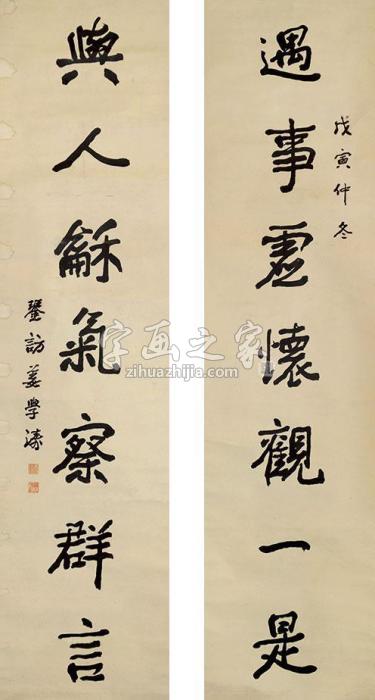 戊寅仲冬
遇事虛懷觀一是
與人龢氣察群言
姜學濤
字画之家
zihuazhijia.com